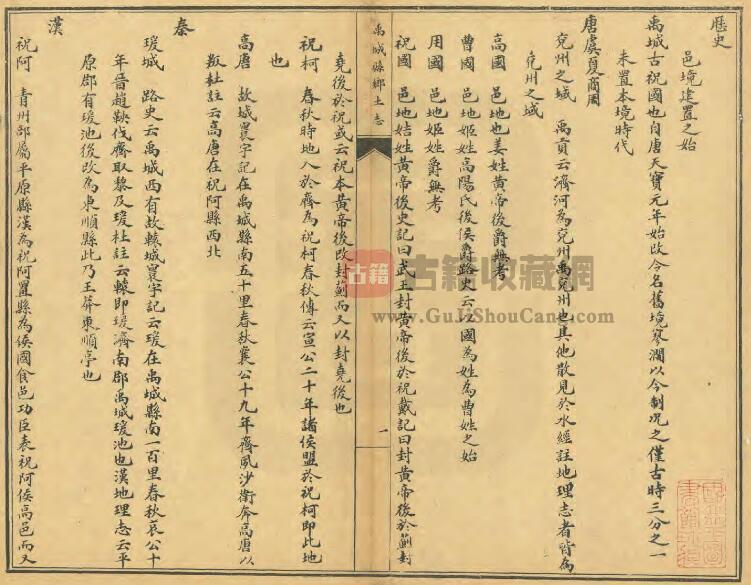 歷史
邑境建置之始
禹城古祝國也自唐天寶元年始改今名舊境寥濶以今制况之僅古時三分之一
未置本境時代
唐虞夏商周
兗州之域 禹貢云濟河為兗州禹兗州也其他散見於水經註地理志者皆為
兗州之域
高國 邑地也姜姓黃帝後爵無考
曹國 邑地姬姓高陽氏後侯爵路史云以國為姓為曹姓之始
用國 邑地姬姓爵無考
祝國 邑地姞姓黃帝後史記曰武王封黃帝後於祝戴記曰封黃帝後於薊封
禹城縣鄉土志
一
堯後於祝或云祝本黃帝後改封薊而又以封堯後也
祝柯 春秋時地入於齊為祝柯春秋傳云宣公二十年諸侯盟於祝柯即此地
也
高唐 故城寰宇記在禹城縣南五十里春秋襄公十九年齊夙沙衛奔高唐以
叛杜註云高唐在祝阿縣西北
秦
瑗城 路史云禹城西有故轅城寰宇記云瑗在禹城縣南一百里春秋哀公十
年晉趙鞅伐齊取犂及瑗杜註云轅即瑗濟南郡禹城瑗池也漢地理志云平
原郡有瑗池後改為東順縣此乃王莽東順亭也
漢
祝阿 青州部屬平原縣漢為祝阿置縣為侯國食邑功臣表祝阿侯高邑而又
古籍 古籍收藏網
www.GuJiShouCang.com